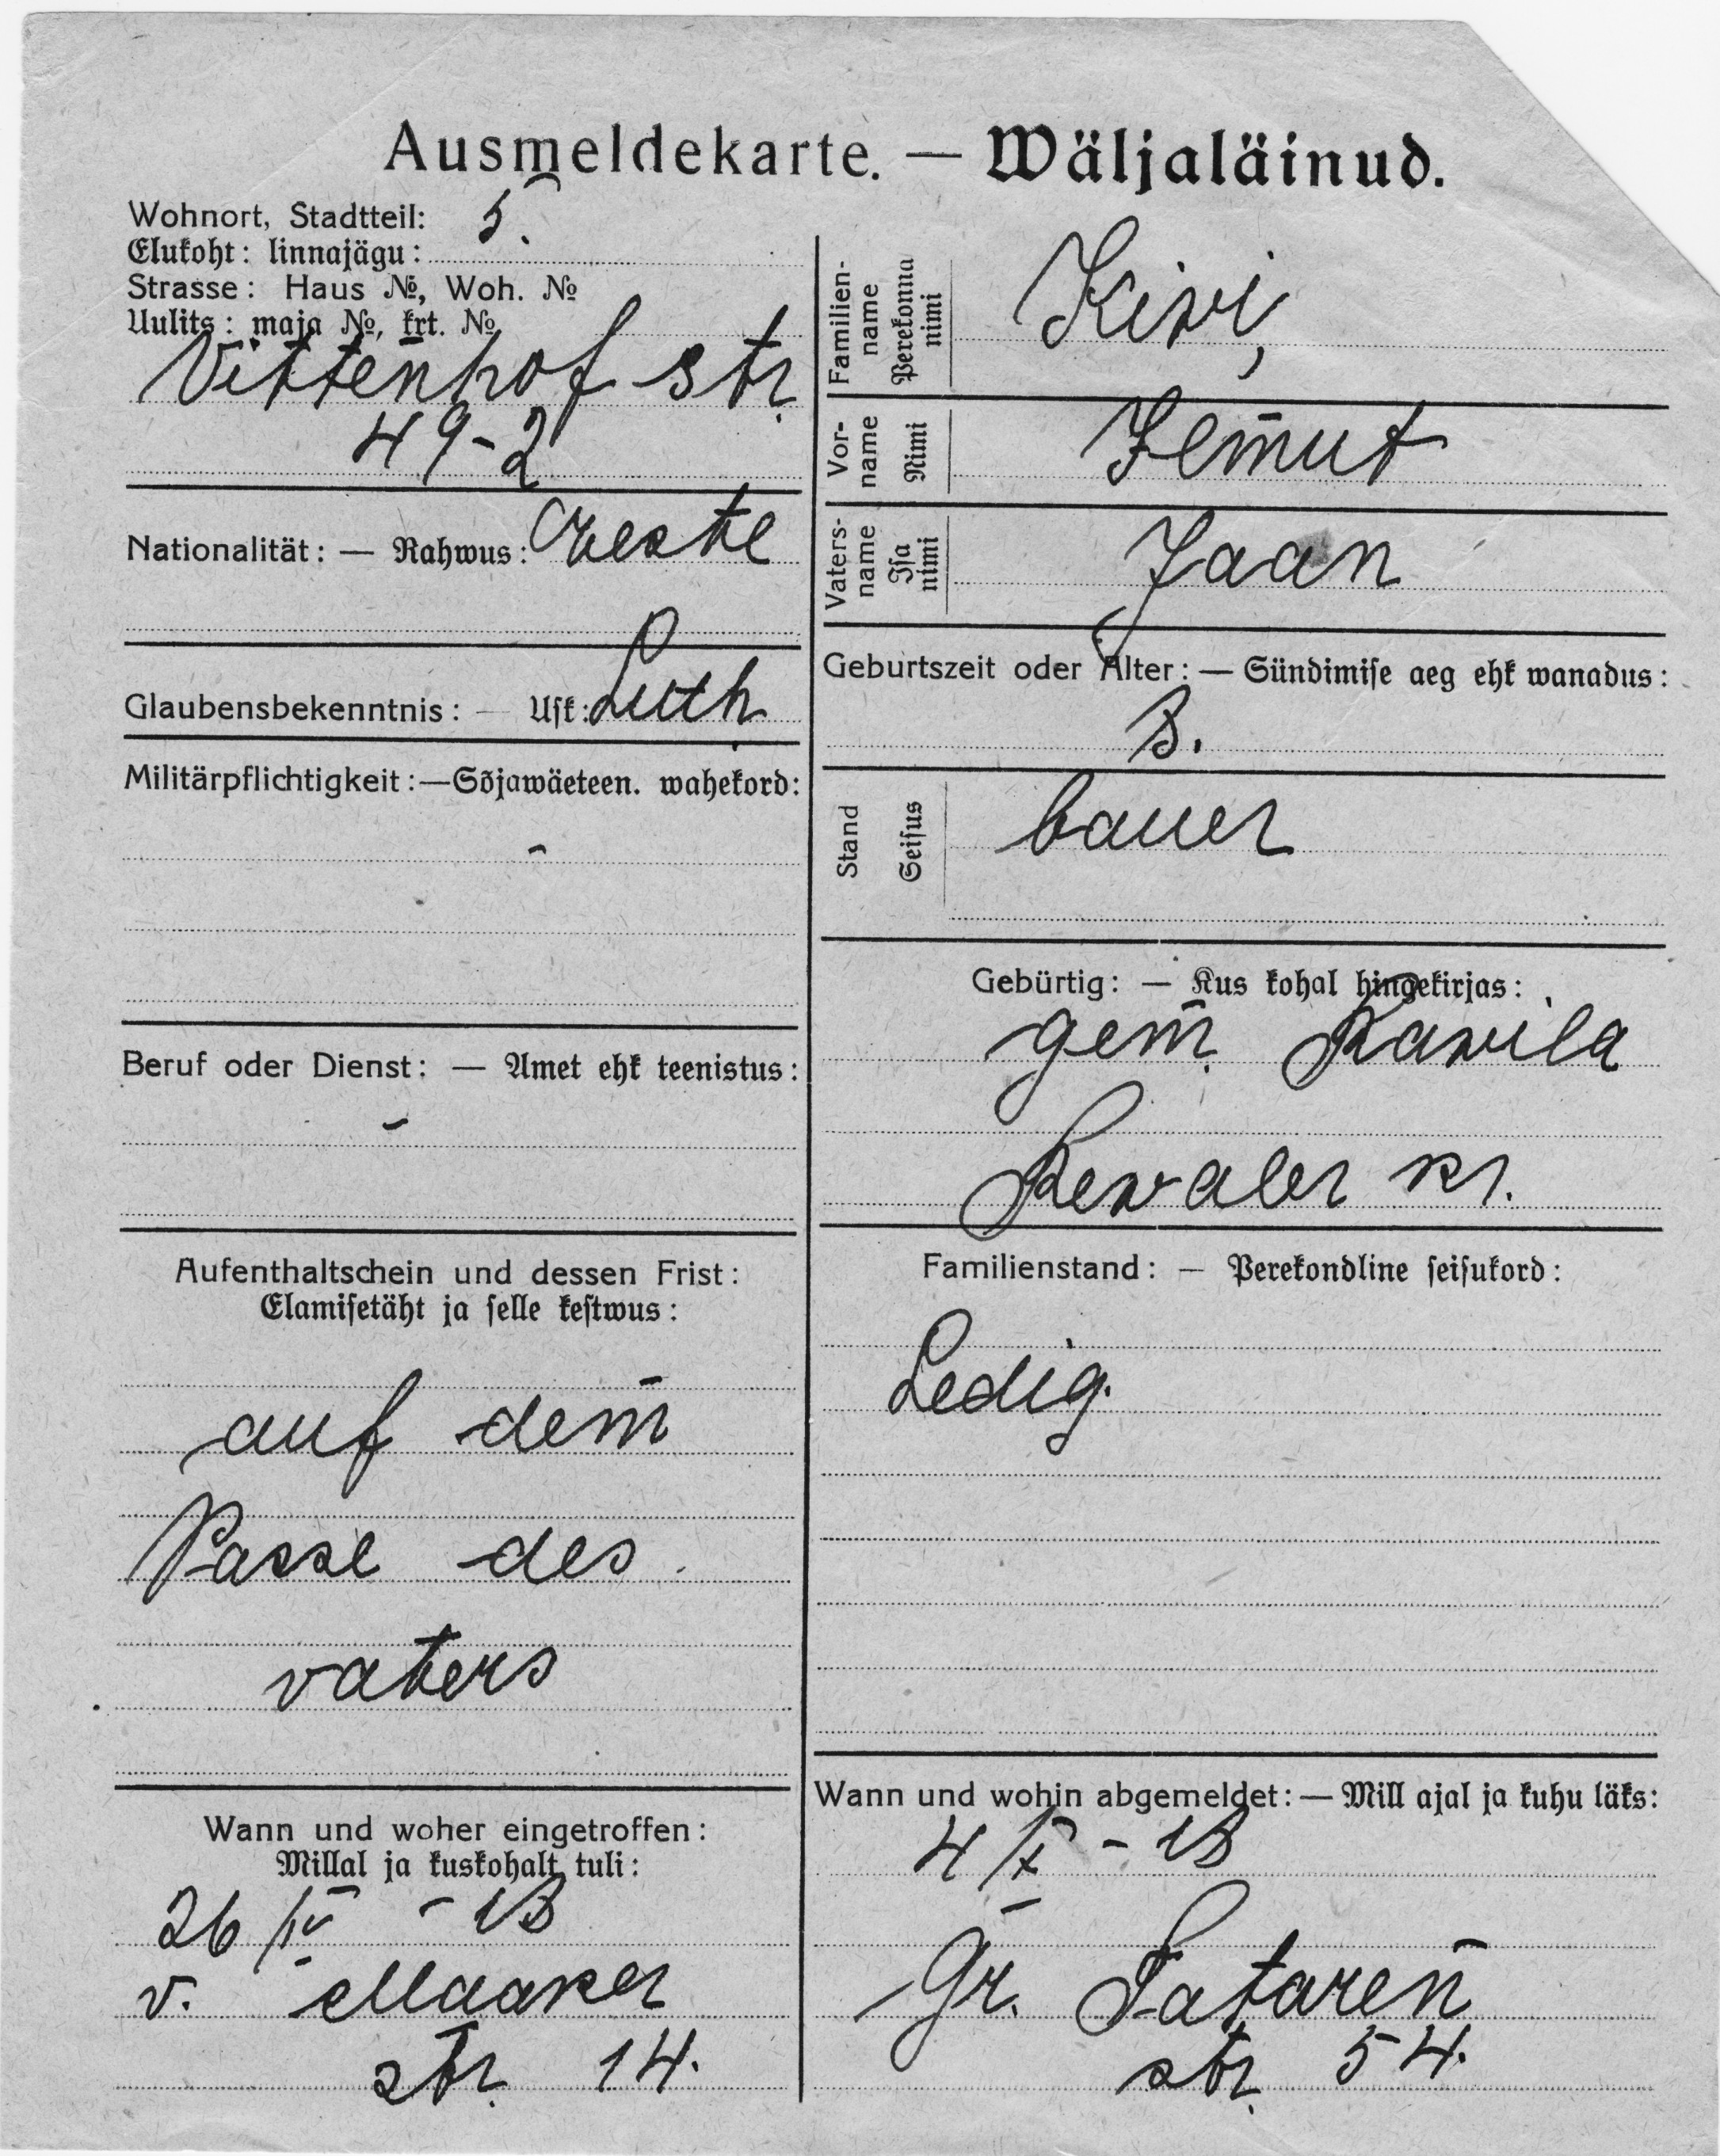 Ausmeldekarte. — Wäljaläinud.
Wohnort, Stadtteil: 5.
Elukoht: linnajägu:
Strasse: Haus №, Woh. №
Uulits: maja №, krt. №
Vittenhof str.
49-2
Nationalität: — Rahwus: Eeste
Glaubensbekenntnis: — Usk: Luth
Militärpflichtigkeit: — Sõjawäeteen. wahekord:
-
Beruf oder Dienst: — Amet ehk teenistus:
-
Aufenthaltschein und dessen Frist:
Elamisetäht ja selle kestwus:
auf dem
Passe des
vaters
Wann und woher eingetroffen:
Millal ja kuskohalt tuli:
26/IV - 18
v. Maaker
str. 14.
Familien-
name
Perekonna
nimi
Kivi,
Vor-
name
Nimi
Jemut
Vaters-
name
Isa
nimi
Jaan
Geburtszeit oder Alter: — Sündimise aeg ehk wanadus:
8.
Stand
Seisus
bauer
Gebürtig: — Kus kohal hingekirjas:
gem. Rawila
Rewaler kr.
Familienstand: — Perekondline seisukord:
Ledig.
Wann und wohin abgemeldet: — Mill ajal ja kuhu läks:
4/X - 18
Gr. Pataren
str. 54.